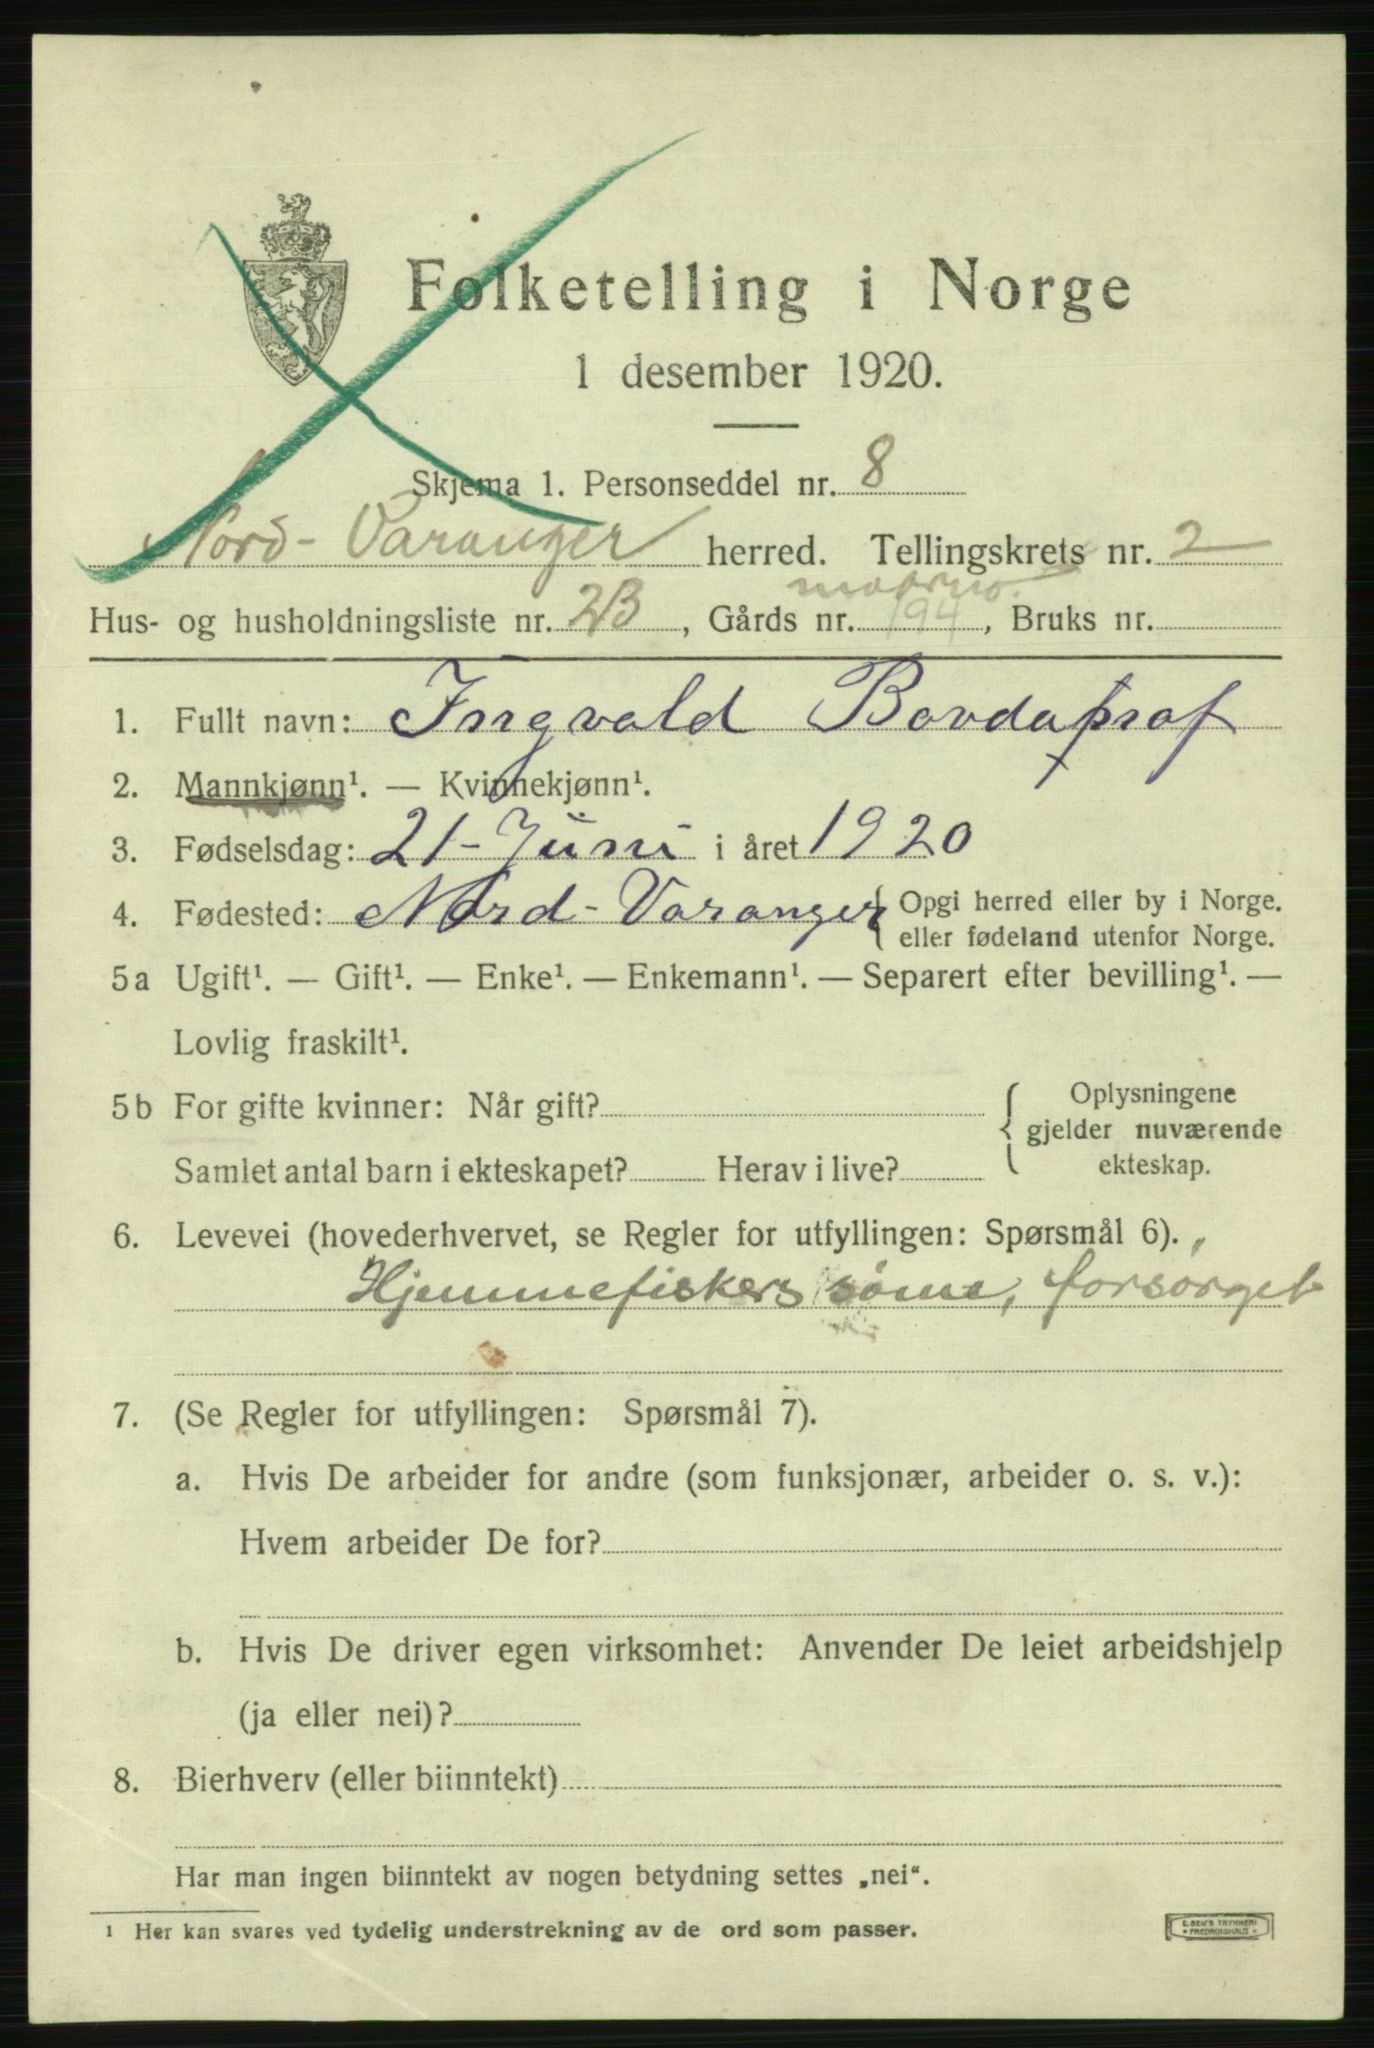 Folketelling i Norge
1 desember 1920.
Skjema 1. Personseddel nr. 8
Nord-Varanger herred. Tellingskrets nr. 2
matr no.
Hus- og husholdningsliste nr. 2B, Gårds nr. 194, Bruks nr.
1. Fullt navn: Ingvald
2. Mannkjønn¹. — Kvinnekjønn¹.
3. Fødselsdag: 21-Juni i året 1920
4. Fødested: Nord-Varanger { Opgi herred eller by i Norge.
eller fødeland utenfor Norge.
5a Ugift¹. — Gift¹. — Enke¹. — Enkemann¹. — Separert efter bevilling¹. —
Lovlig fraskilt¹.
5b For gifte kvinner: Når gift? { Oplysningene
gjelder nuværende
Samlet antal barn i ekteskapet? Herav i live? ekteskap.
6. Levevei (hovederhvervet, se Regler for utfyllingen: Spørsmål 6).
Hjemmefiskers sønn, forsørget
7. (Se Regler for utfyllingen: Spørsmål 7).
a. Hvis De arbeider for andre (som funksjonær, arbeider o. s. v.):
Hvem arbeider De for?
b. Hvis De driver egen virksomhet: Anvender De leiet arbeidshjelp
(ja eller nei)?
8. Bierhverv (eller biinntekt)
Har man ingen biinntekt av nogen betydning settes „nei“.
¹ Her kan svares ved tydelig understrekning av de ord som passer.
E. SEM'S TRYKKERI
FREDRIKSHALD